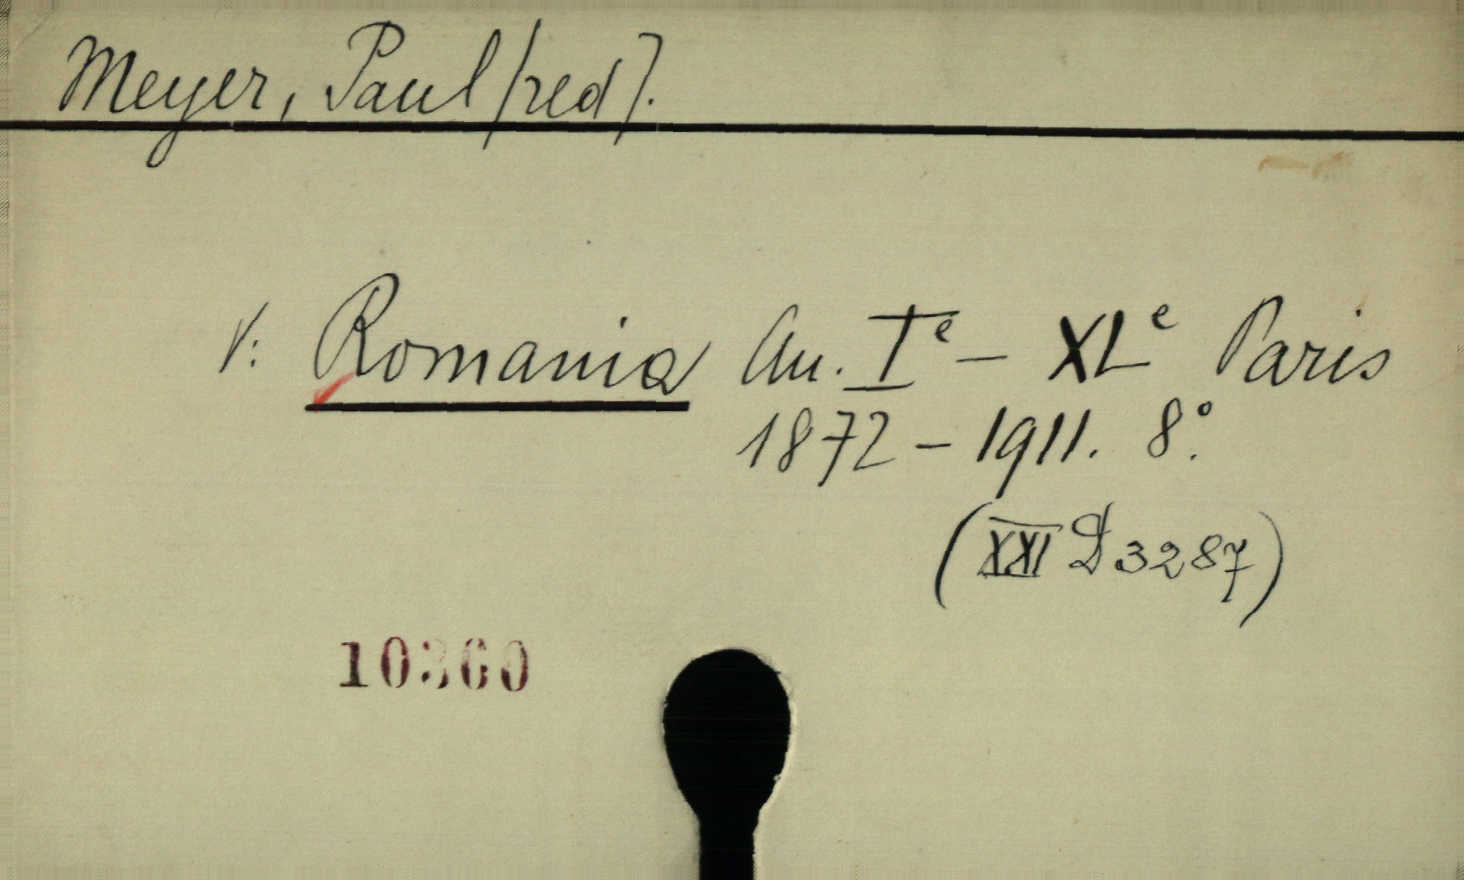 Meyer, Paul (red).
V: Romania An. Iᵉ – XLᵉ Paris
1872 – 1911. 8°.
(XXI D 3287)
10360